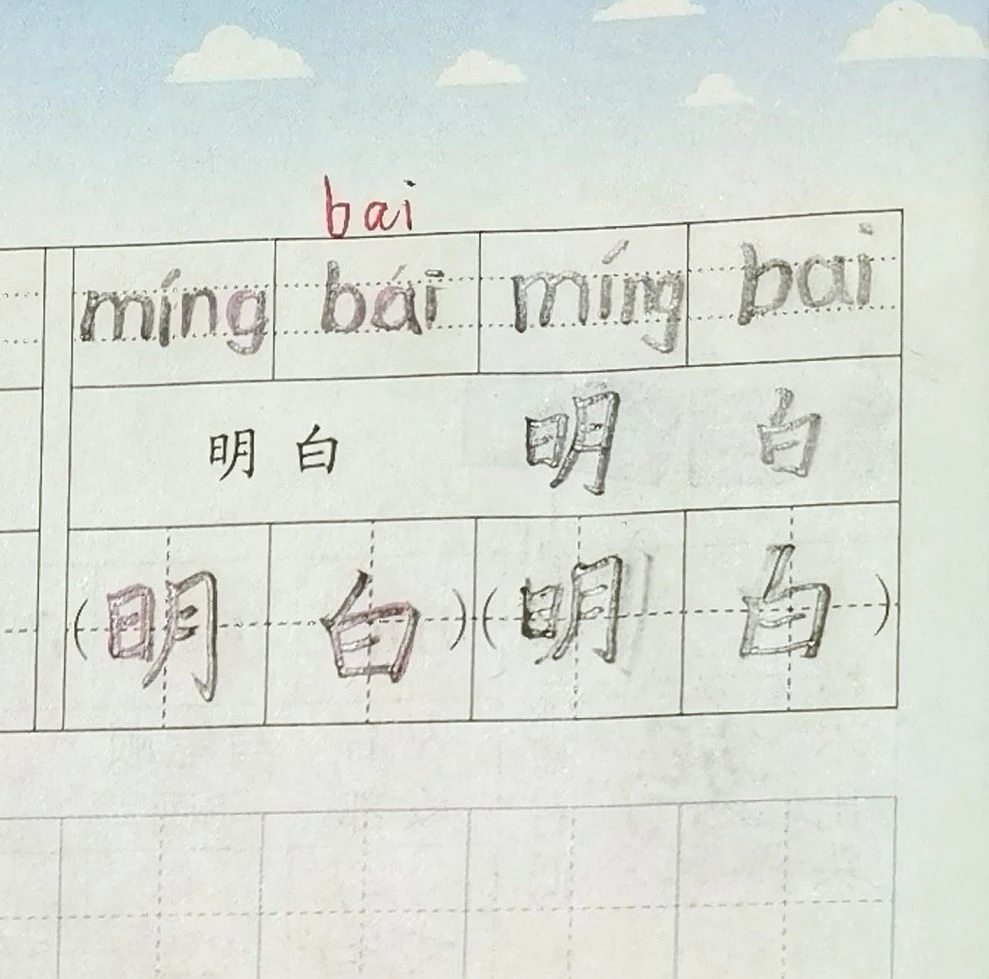 bai
míng bái míng bai
明白 明 白
(明 白) (明 白)